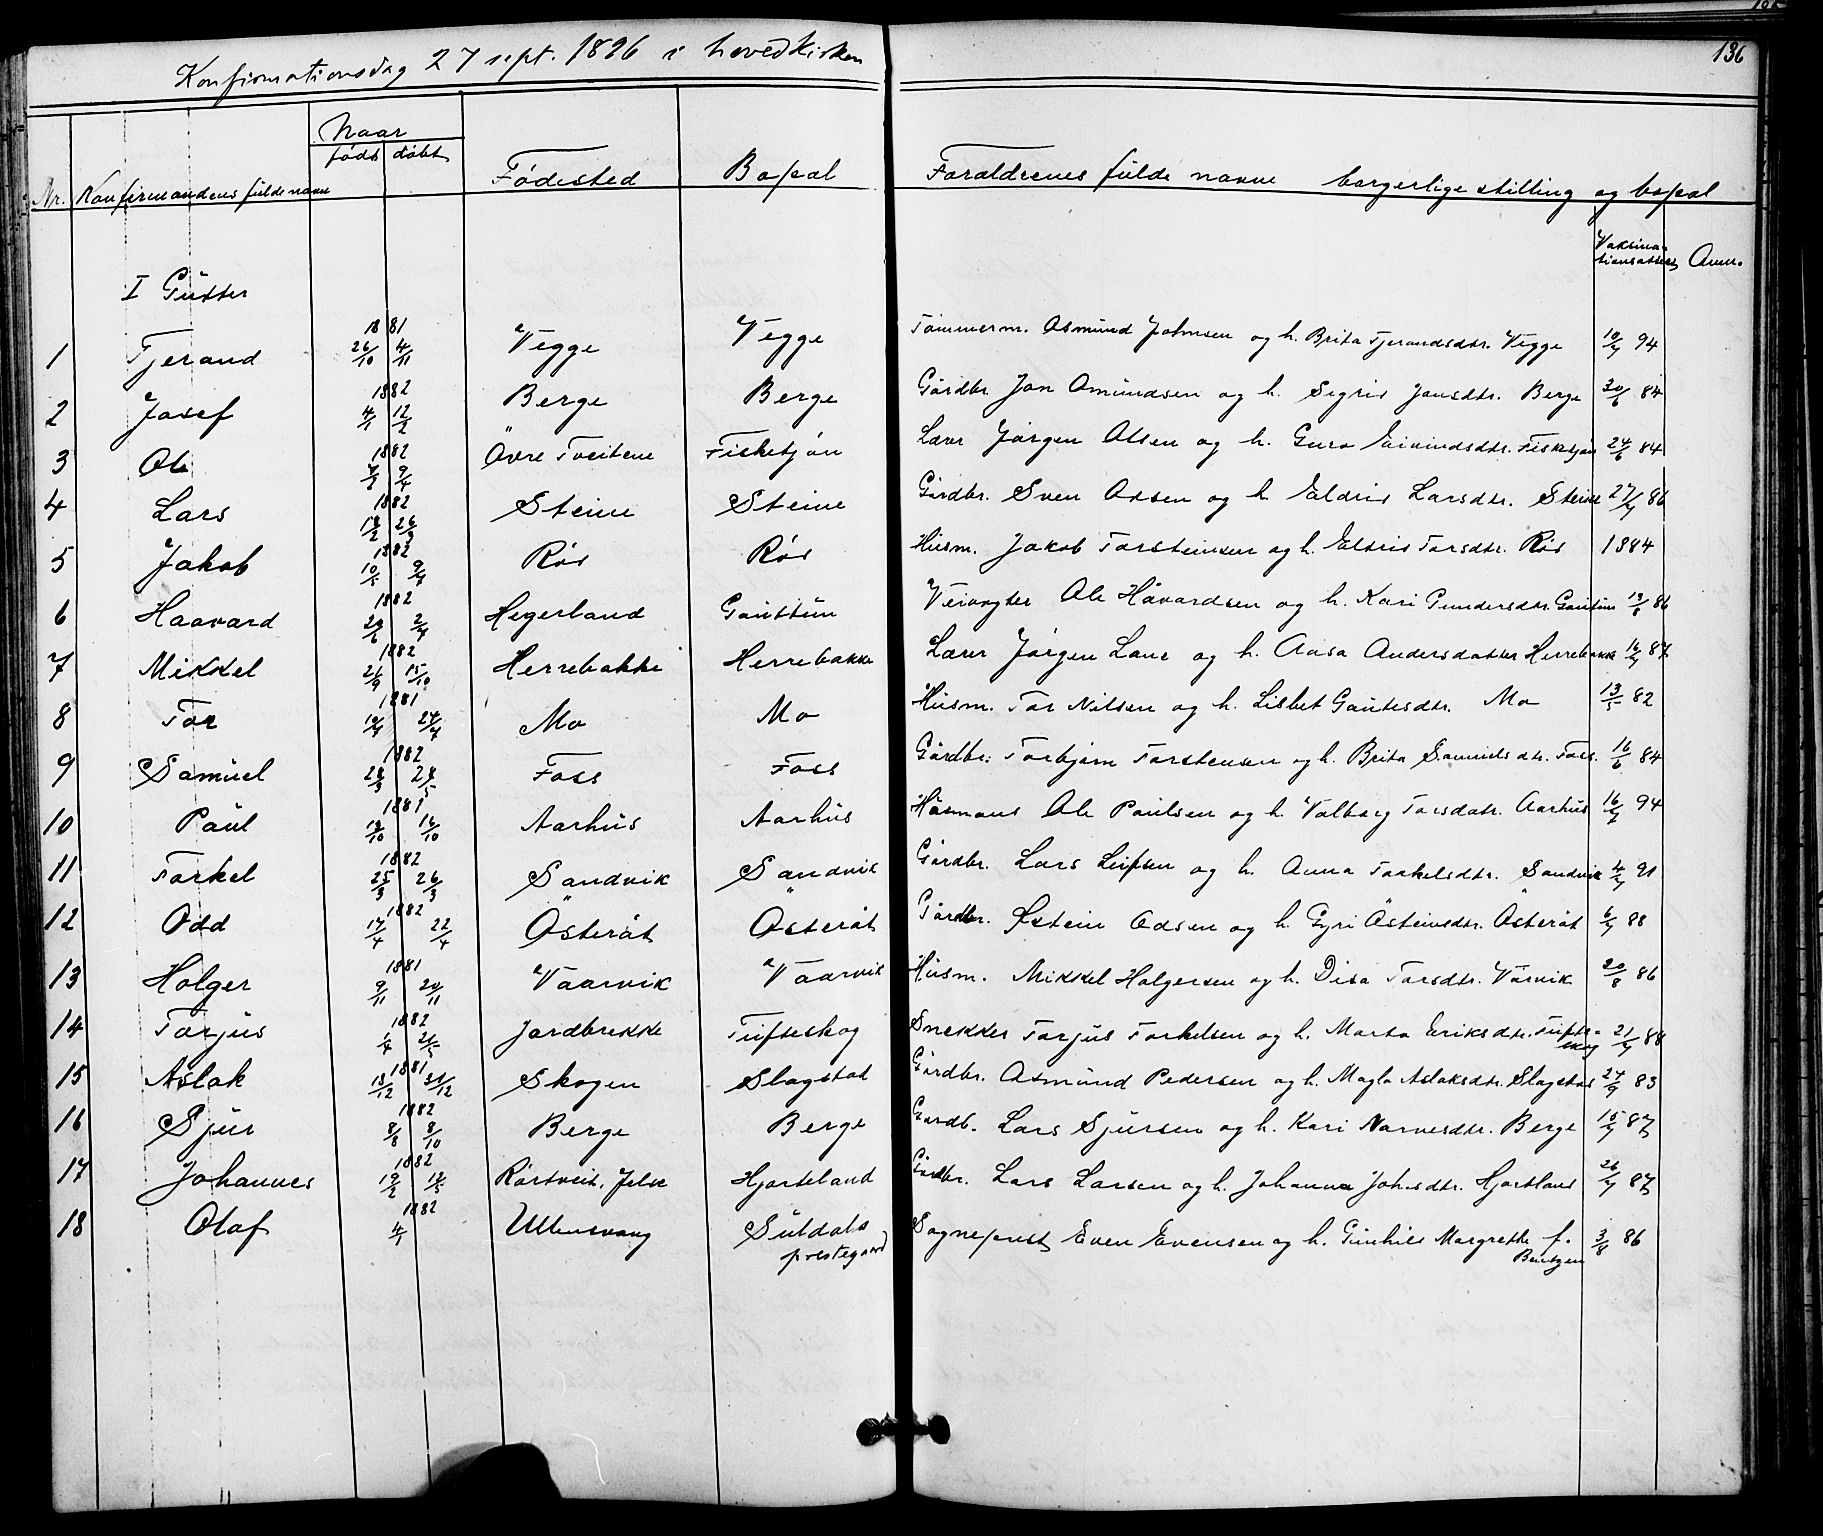 Konfirmationsdag 27 sept. 1896 i hovedkirken
136
Nr. Konfirmandens fulde navn Naar født døbt Fødested Bopæl Forældrenes fulde navne borgerlige stilling og bopæl
Vaksina-
tionsattest Anm.
I Gutter
1 Tjerand 1881 26/10 4/11 Vegge Vegge Tømmerm. Asmund Johnsen og h. Brita Tjerandsdtr. Vegge 94
2 Josef 1882 4/1 12/2 Berge Berge Gårdbr. Jon Amundsen og h. Segrid Jonsdtr. Berge 30/6 84
3 Ole 1882 9/4 Övre Tveitene Fisketjøn Lærer Jørgen Olsen og h. Guro Eivindsdtr. Fisketjøn 24/6 84
4 Lars 1882 26/3 Steine Steine Gårdbr. Sven Odsen og h. Eldrid Larsdtr. Steine 86
5 Jakob 1882 Röd Röd Husm. Jakob Torsteinsen og h. Eldrid Torsdtr. Röd 1884
6 Haavard 1882 Hegerland Gauttun Veivogter Ole Håvardsen og h. Kari Gundersdtr. Gautun 86
7 Mikkel 1882 21/9 15/10 Herrebakke Herrebakke Lærer Jørgen Lane og h. Aasa Andersdatter Herrebakk 87
8 Tor 1881 Mo Mo Husm. Tor Nilsen og h. Lisbet Gautesdtr. Mo 13/5 82
9 Samuel 1882 Foss Foss Gårdbr. Torbjørn Torstensen og h. Brita Samuelsdtr. Foss. 16/6 84
10 Paul 1881 16/10 Aarhus Aarhus Husmand Ole Paulsen og h. Valborg Torsdatr. Aarhus 94
11 Torkel 1882 25/3 26/3 Sandvik Sandvik Gårdbr. Lars Leifsen og h. Anna Torkelsdtr. Sandvik 91
12 Odd 1882 17/4 22/4 Österåt Österåt Gårdbr. Østein Odsen og h. Gyri Østeinsdtr. Österåt 88
13 Holger 1881 9/11 20/11 Vaarvik Vaarvik Husm. Mikkel Holgersen og h. Disa Torsdtr. Vårvik 20/8 86
14 Torjus 1882 Jordbrekke Tufteskog Snekker Torjus Torkelsen og h. Marta Eriksdtr. Tufte-
skog 88
15 Aslak 1881 18/12 31/12 Skogen Slagstad Gårdbr. Asmund Pedersen og h. Magla Aslaksdtr. Slagstad 24/9 83
16 Sjur 1882 8/8 8/10 Berge Berge Gardb. Lars Sjursen og h. Kari Narvesdtr. Berge 87
17 Johannes 1882 Rørtveit, Jelse Hjorteland Gårdbr. Lars Larsen og h. Johanna Johsdtr. Hjortland 87
18 Olaf 1882 4/1 Ullensvang Suldals
prestegård Sogneprest Even Evensen og h. Gunhild Margrethe f.
Bentzen 3/8 86